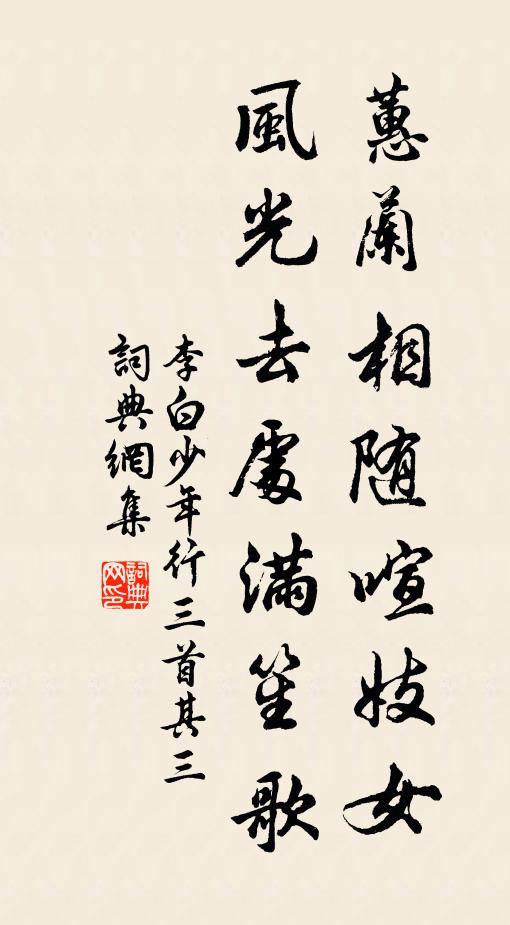 蕙蘭相随喧妓女
風光去處满笙歌
李白少年行三首其三
詞典網集
詞典网印